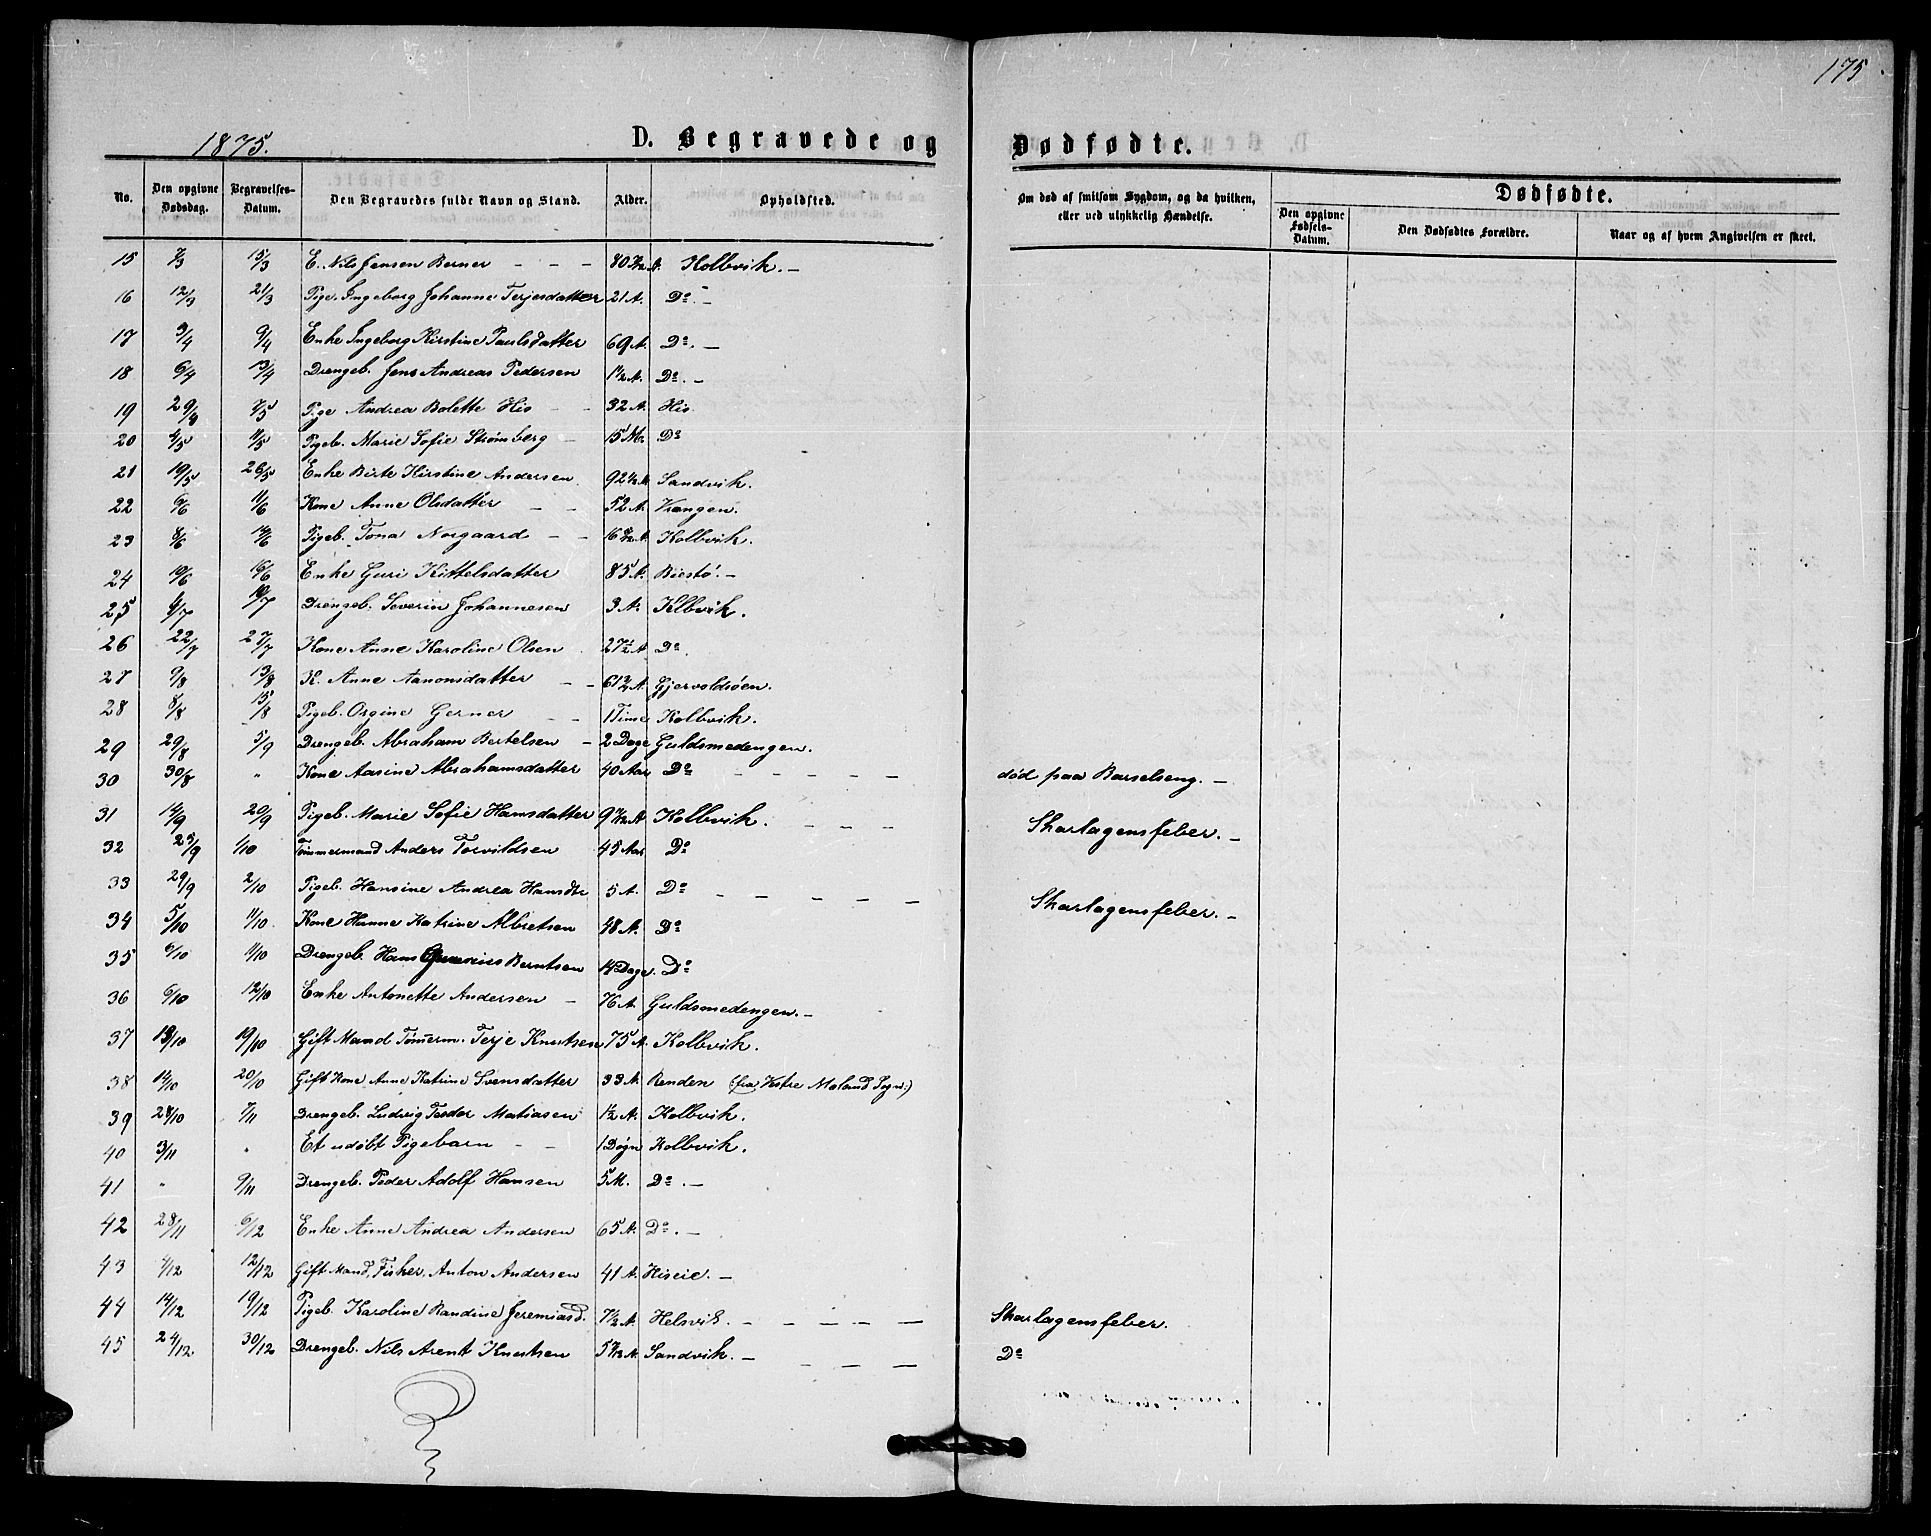 175
1875.
D. Begravede og Dødfødte.
No. Den opgivne Dødsdag. Begravelses-Datum. Den Begravedes fulde Navn og Stand. Alder. Opholdsted. Om død af smitsom Sygdom, og da hvilken, eller ved ulykkelig Hændelse. Dødfødte.
Den opgivne Fødsels-Datum. Den Dødfødtes Forældre. Naar og af hvem Angivelsen er skeet.
15 15/3 E. Nils Jensen Berner - - - 80 Kolbvik. -
16 12/3 21/3 Pige. Ingeborg Johanne Terjesdatter 21 A. Do. -
17 3/4 9/4 Enke Ingeborg Kirstine Paulsdatter 69 A. Do. -
18 6/4 13/4 Drengeb. Jens Andreas Pedersen 1½ A. Do. -
19 29/4 7/5 Pige Andrea Bolette His - - 32 A. His
20 Pigeb. Marie Sofie Strømberg - 15 M. Do
21 19/5 26/5 Enke Birte Kirstine Andersen 92½ A. Sandvik.
22 6/6 11/6 Kone Anne Olsdatter - - 52 A. Vrangen.
23 8/6 14/6 Pigeb. Tona Norgaard - - 16 Kolbvik.
24 10/6 16/6 Enke Guri Kittelsdatter 85 A. Biestø. -
25 Drengeb. Severin Johannesen 3 A. Klbvik.
26 22/7 27/7 Kone Anne Karoline Olsen 27½ A. Do.
27 9/8 13/8 K. Anne Aanonsdatter - - 61½ A. Gjervoldsøen.
28 8/8 15/8 Pigeb. Orgine Gerner - - 1 Time Kolbvik.
29 29/8 5/9 Drengeb. Abraham Bertelsen - 2 Dage Guldsmedengen.
30 30/8 " Kone Aasine Abrahamsdatter 40 Aar Do - - - - - død paa Barselseng. -
31 14/9 20/9 Pigeb. Marie Sofie Hansdatter 9 Kolbvik. - - - Skarlagensfeber. -
32 25/9 1/10 Tømmermand Anders Torvildsen 45 Aar Do
33 29/9 2/10 Pigeb. Hansine Andrea Hansdtr 5 A. Do - - - - - Skarlagensfeber. -
34 5/10 11/10 Kone Hanne Katrine Albretsen 48 A. Do
35 6/10 11/10 Drengeb. Hans Berntsen 14 Dage. Do
36 6/10 12/10 Enke Antonette Andersen - 76 A. Guldsmedengen. -
37 13/10 19/10 Gift Mand Tømerm. Terje Knutsen 75 A. Kolbvik.
38 14/10 20/10 Gift Kone Anne Katrine Svensdatter 33 A. Renden (fra Vestre Moland Sogn:)
39 28/10 7/11 Drengeb. Ludvig Teodor Matiasen 1½ A. Kolbvik.
40 3/11 " Et udøbt Pigebarn - - 1 Døgn Kolbvik.
41 " 9/11 Drengeb. Peder Adolf Hansen 5 M. Do. -
42 28/11 6/12 Enke Anne Andrea Andersen 65 A. Do. -
43 12/12 Gift Mand, Fisker, Anton Andersen 41 A. Hiseie. -
44 14/12 19/12 Pigeb. Karoline Randine Jeremiasd. 7½ A. Helsvik. - - - - - Skarlagensfeber.
45 24/12 30/12 Drengeb. Nils Arent Knutsen 5 Sandvik. - - - - Do